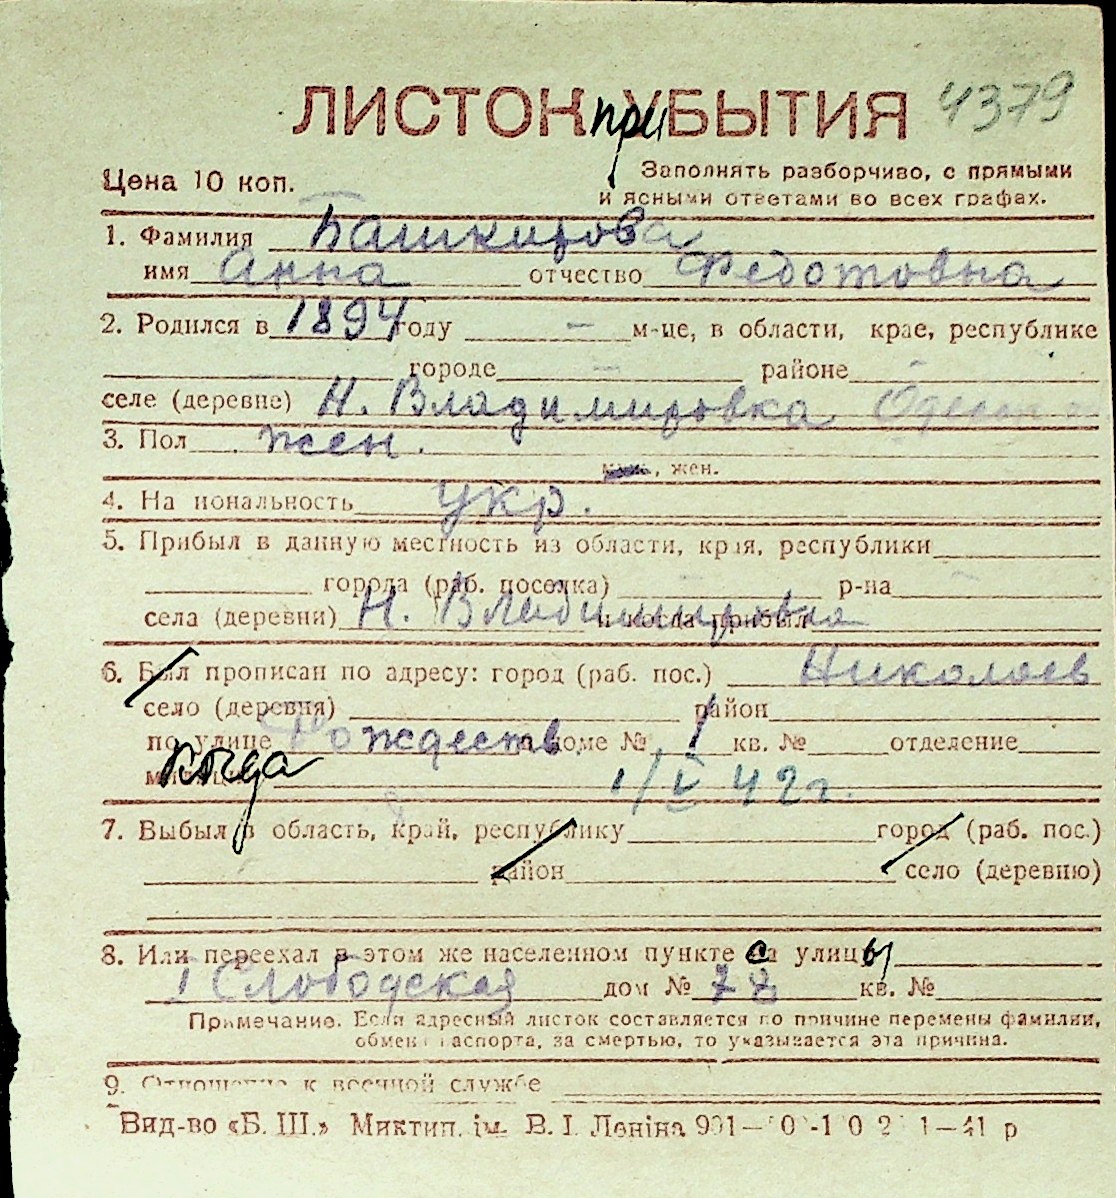 ЛИСТОК при УБЫТИЯ 4379
Цена 10 коп.
Заполнять разборчиво, с прямыми
и ясными ответами во всех графах.
1. Фамилия Башкирова
имя Анна отчество Федотовна
2. Родился в 1894 году — м-це, в области, крае, республике
городе — районе
селе (деревне) Н. Владимировка
3. Пол жен.
муж., жен.
4. Национальность укр.
5. Прибыл в данную местность из области, края, республики
города (раб. поселка) р-на
села (деревни) Н. Владимировка и когда прибыл
6. Был прописан по адресу: город (раб. пос.) Николаев
село (деревня) район
по улице Рождеств. в доме № 1 кв. № отделение
милиции когда 1/V 42 г.
7. Выбыл в область, край, республику город (раб. пос.)
район село (деревню)
8. Или переехал в этом же населенном пункте с улицы
I Слободская дом № кв. №
Примечание. Если адресный листок составляется по причине перемены фамилии,
обмена паспорта, за смертью, то указывается эта причина.
9. Отношение к военной службе
Вид-во «Б. Ш.» Миктип. ім. В. І. Леніна